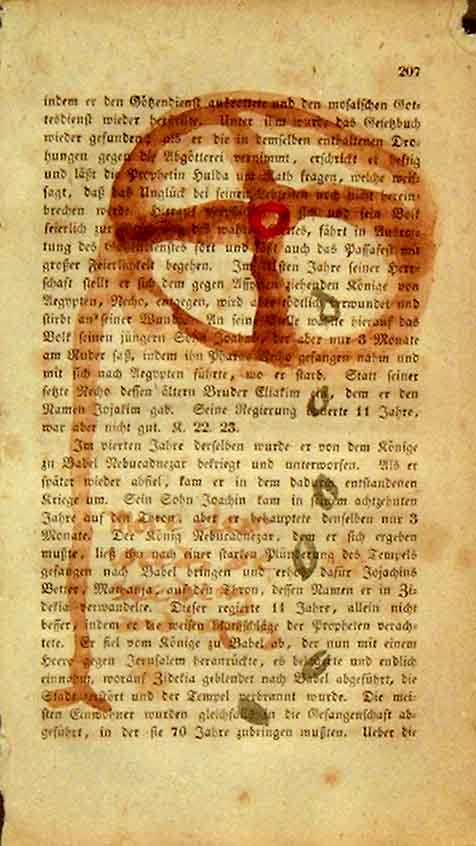 207
indem er den Götzendienst ausrottete und den mosaischen Got-
tesdienst wieder herstellte. Unter ihm wurde das Gesetzbuch
wieder gefunden; als er die in demselben enthaltenen Dro-
hungen gegen die Abgötterei vernimmt, erschrickt er heftig
und läßt die Prophetin Hulda um Rath fragen, welche weis-
sagt, daß das Unglück bei seinen Lebzeiten noch nicht herein-
brechen werde. Hierauf er und sein Volk
feierlich zur des wahren, fährt in Ausrot-
tung des Götzendienstes fort und läßt auch das Passafest mit
großer Feierlichkeit begehen. Im Jahre seiner Herr-
schaft stellt er sich dem gegen Assyrien ziehenden Könige von
Aegypten, Necho, entgegen, wird aber tödtlich verwundet und
stirbt an seiner Wunde. An seine Stelle wählte hierauf das
Volk seinen jüngern Sohn Joahas, der aber nur 3 Monate
am Ruder saß, indem ihn Pharao Necho gefangen nahm und
mit sich nach Aegypten führte, wo er starb. Statt seiner
setzte Necho dessen ältern Bruder Eliakim ein, dem er den
Namen Jojakim gab. Seine Regierung dauerte 11 Jahre,
war aber nicht gut. K. 22. 23.
Im vierten Jahre derselben wurde er von dem Könige
zu Babel Nebucadnezar bekriegt und unterworfen. Als er
später wieder abfiel, kam er in dem dadurch entstandenen
Kriege um. Sein Sohn Joachin kam in seinem achtzehnten
Jahre auf den Thron, aber er behauptete denselben nur 3
Monate. Der König Nebucadnezar, dem er sich ergeben
mußte, ließ ihn nach einer starken Plünderung des Tempels
gefangen nach Babel bringen und erhob dafür Jojachins
Vetter, Mathanja, auf den Thron, dessen Namen er in Zi-
dekia verwandelte. Dieser regierte 11 Jahre, allein nicht
besser, indem er die weisen Rathschläge der Propheten verach-
tete. Er fiel vom Könige zu Babel ab, der nun mit einem
Heere gegen Jerusalem heranrückte, es belagerte und endlich
einnahm, worauf Zidekia geblendet nach Babel abgeführt, die
Stadt zerstört und der Tempel verbrannt wurde. Die mei-
sten Einwohner wurden gleichfalls in die Gefangenschaft ab-
geführt, in der sie 70 Jahre zubringen mußten. Ueber die